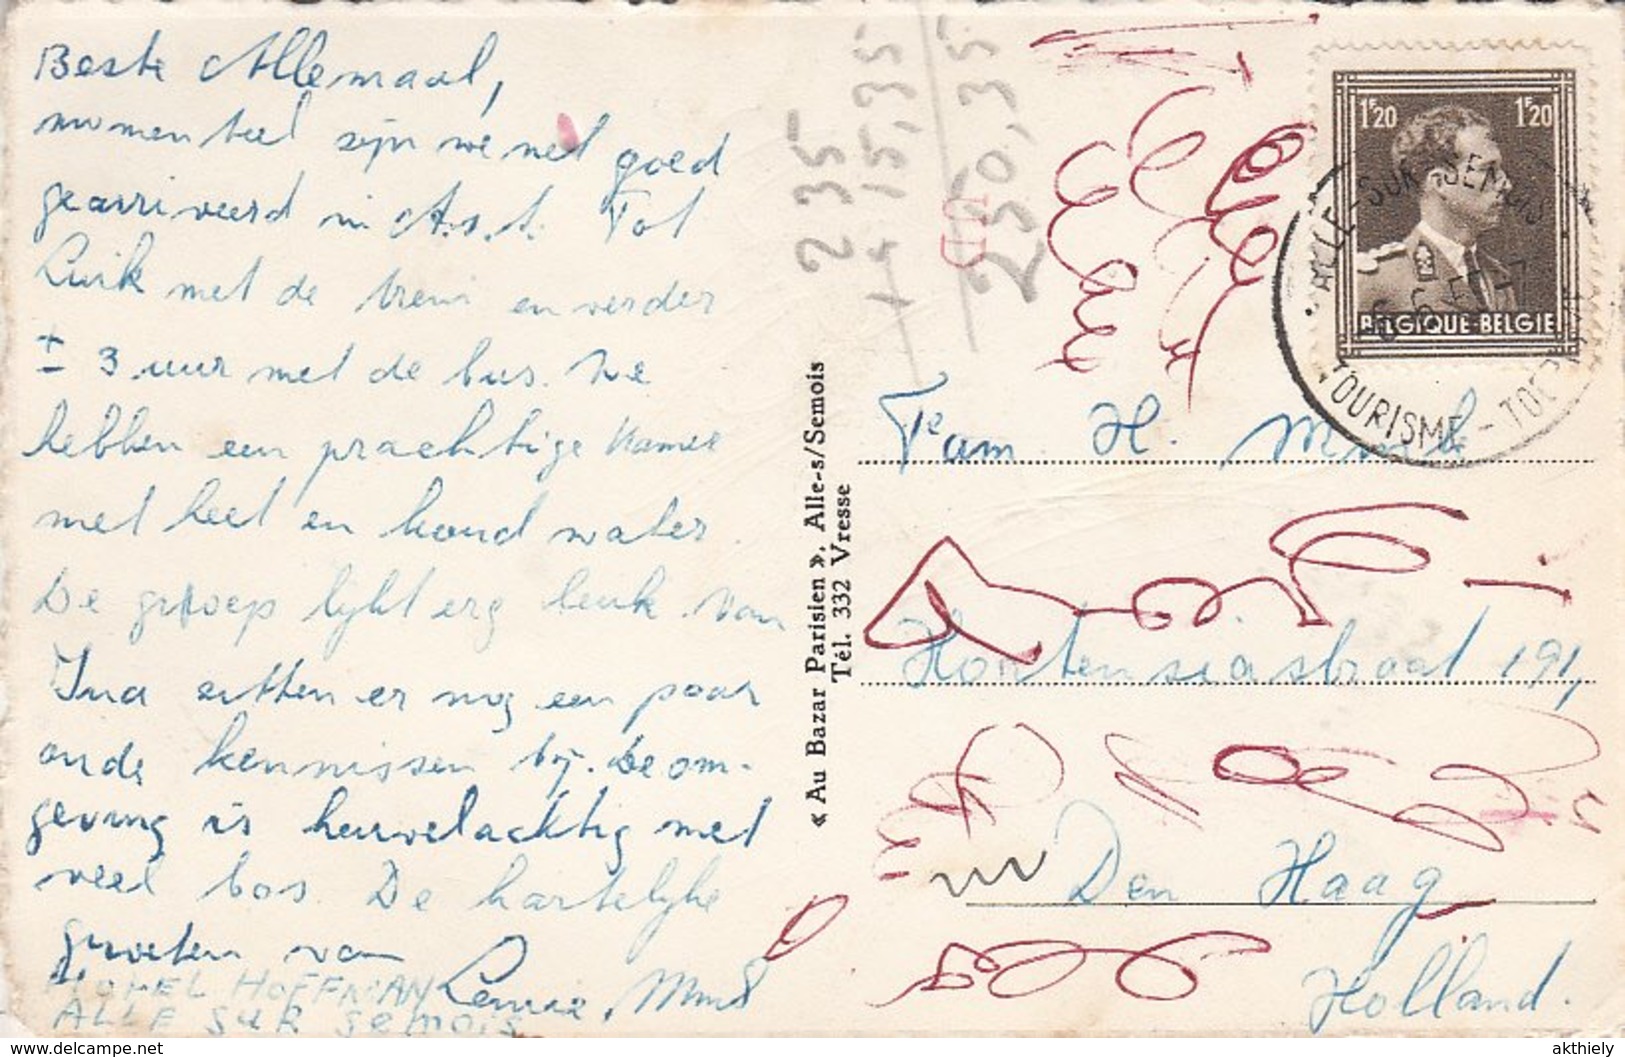 Beste Allemaal,
momenteel zijn we net goed
gearriveerd in A.s.S. Tot
Luik met de trein en verder
± 3 uur met de bus. We
hebben een prachtige kamer
met heet en koud water.
De groep lijkt erg leuk. Van
Ina zitten er nog een paar
oude kennissen bij. De om-
geving is heuvelachtig met
veel bos. De hartelijke
groeten van
HOTEL HOFFMAN
ALLE SUR SEMOIS
« Au Bazar Parisien », Alle-s/Semois
Tél. 332 Vresse
235
+ 15,35
250,35
1F20 1F20
BELGIQUE-BELGIE
ALLE-SUR-SEMOIS
TOURISME - TOERISME
Fam H.
Hortensiastraat 191,
Den Haag
Holland.
delcampe.net
akthiely